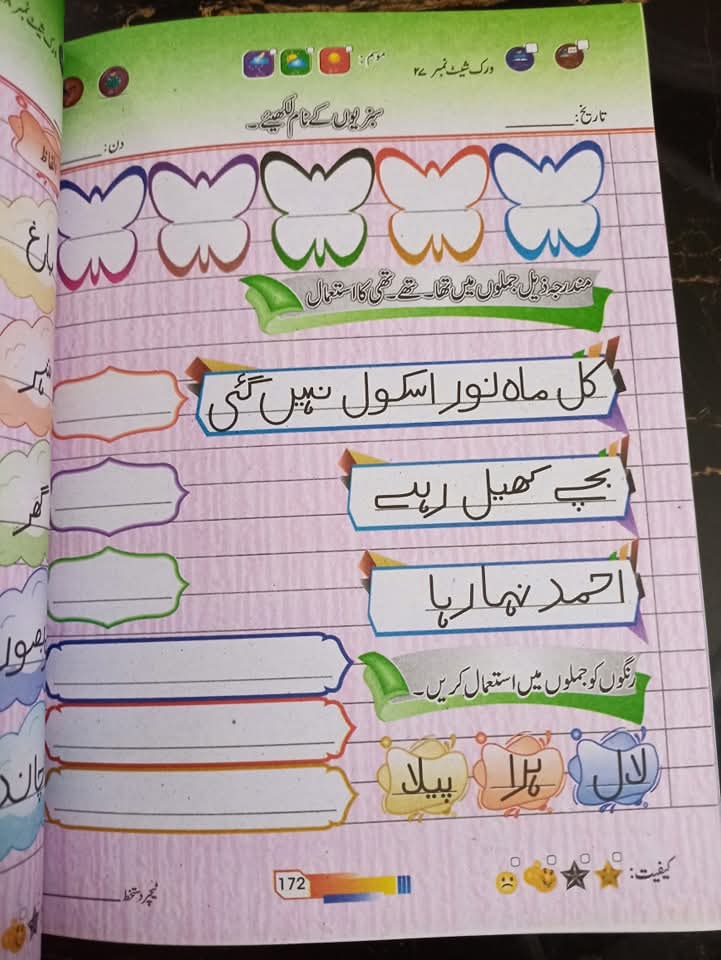 ورک شیٹ نمبر ۲۷
موسم:
تاریخ:
سبزیوں کے نام لکھیئے۔
دن:
مندرجہ ذیل جملوں میں تھا۔ تھے۔ تھی کا استعمال
کل ماہ نور اسکول نہیں گئی
بچے کھیل رہے
احمد نہا رہا
رنگوں کو جملوں میں استعمال کریں۔
لال
ہرا
پیلا
کیفیت:
172
ٹیچر دستخط
باغ
گھر
چاند